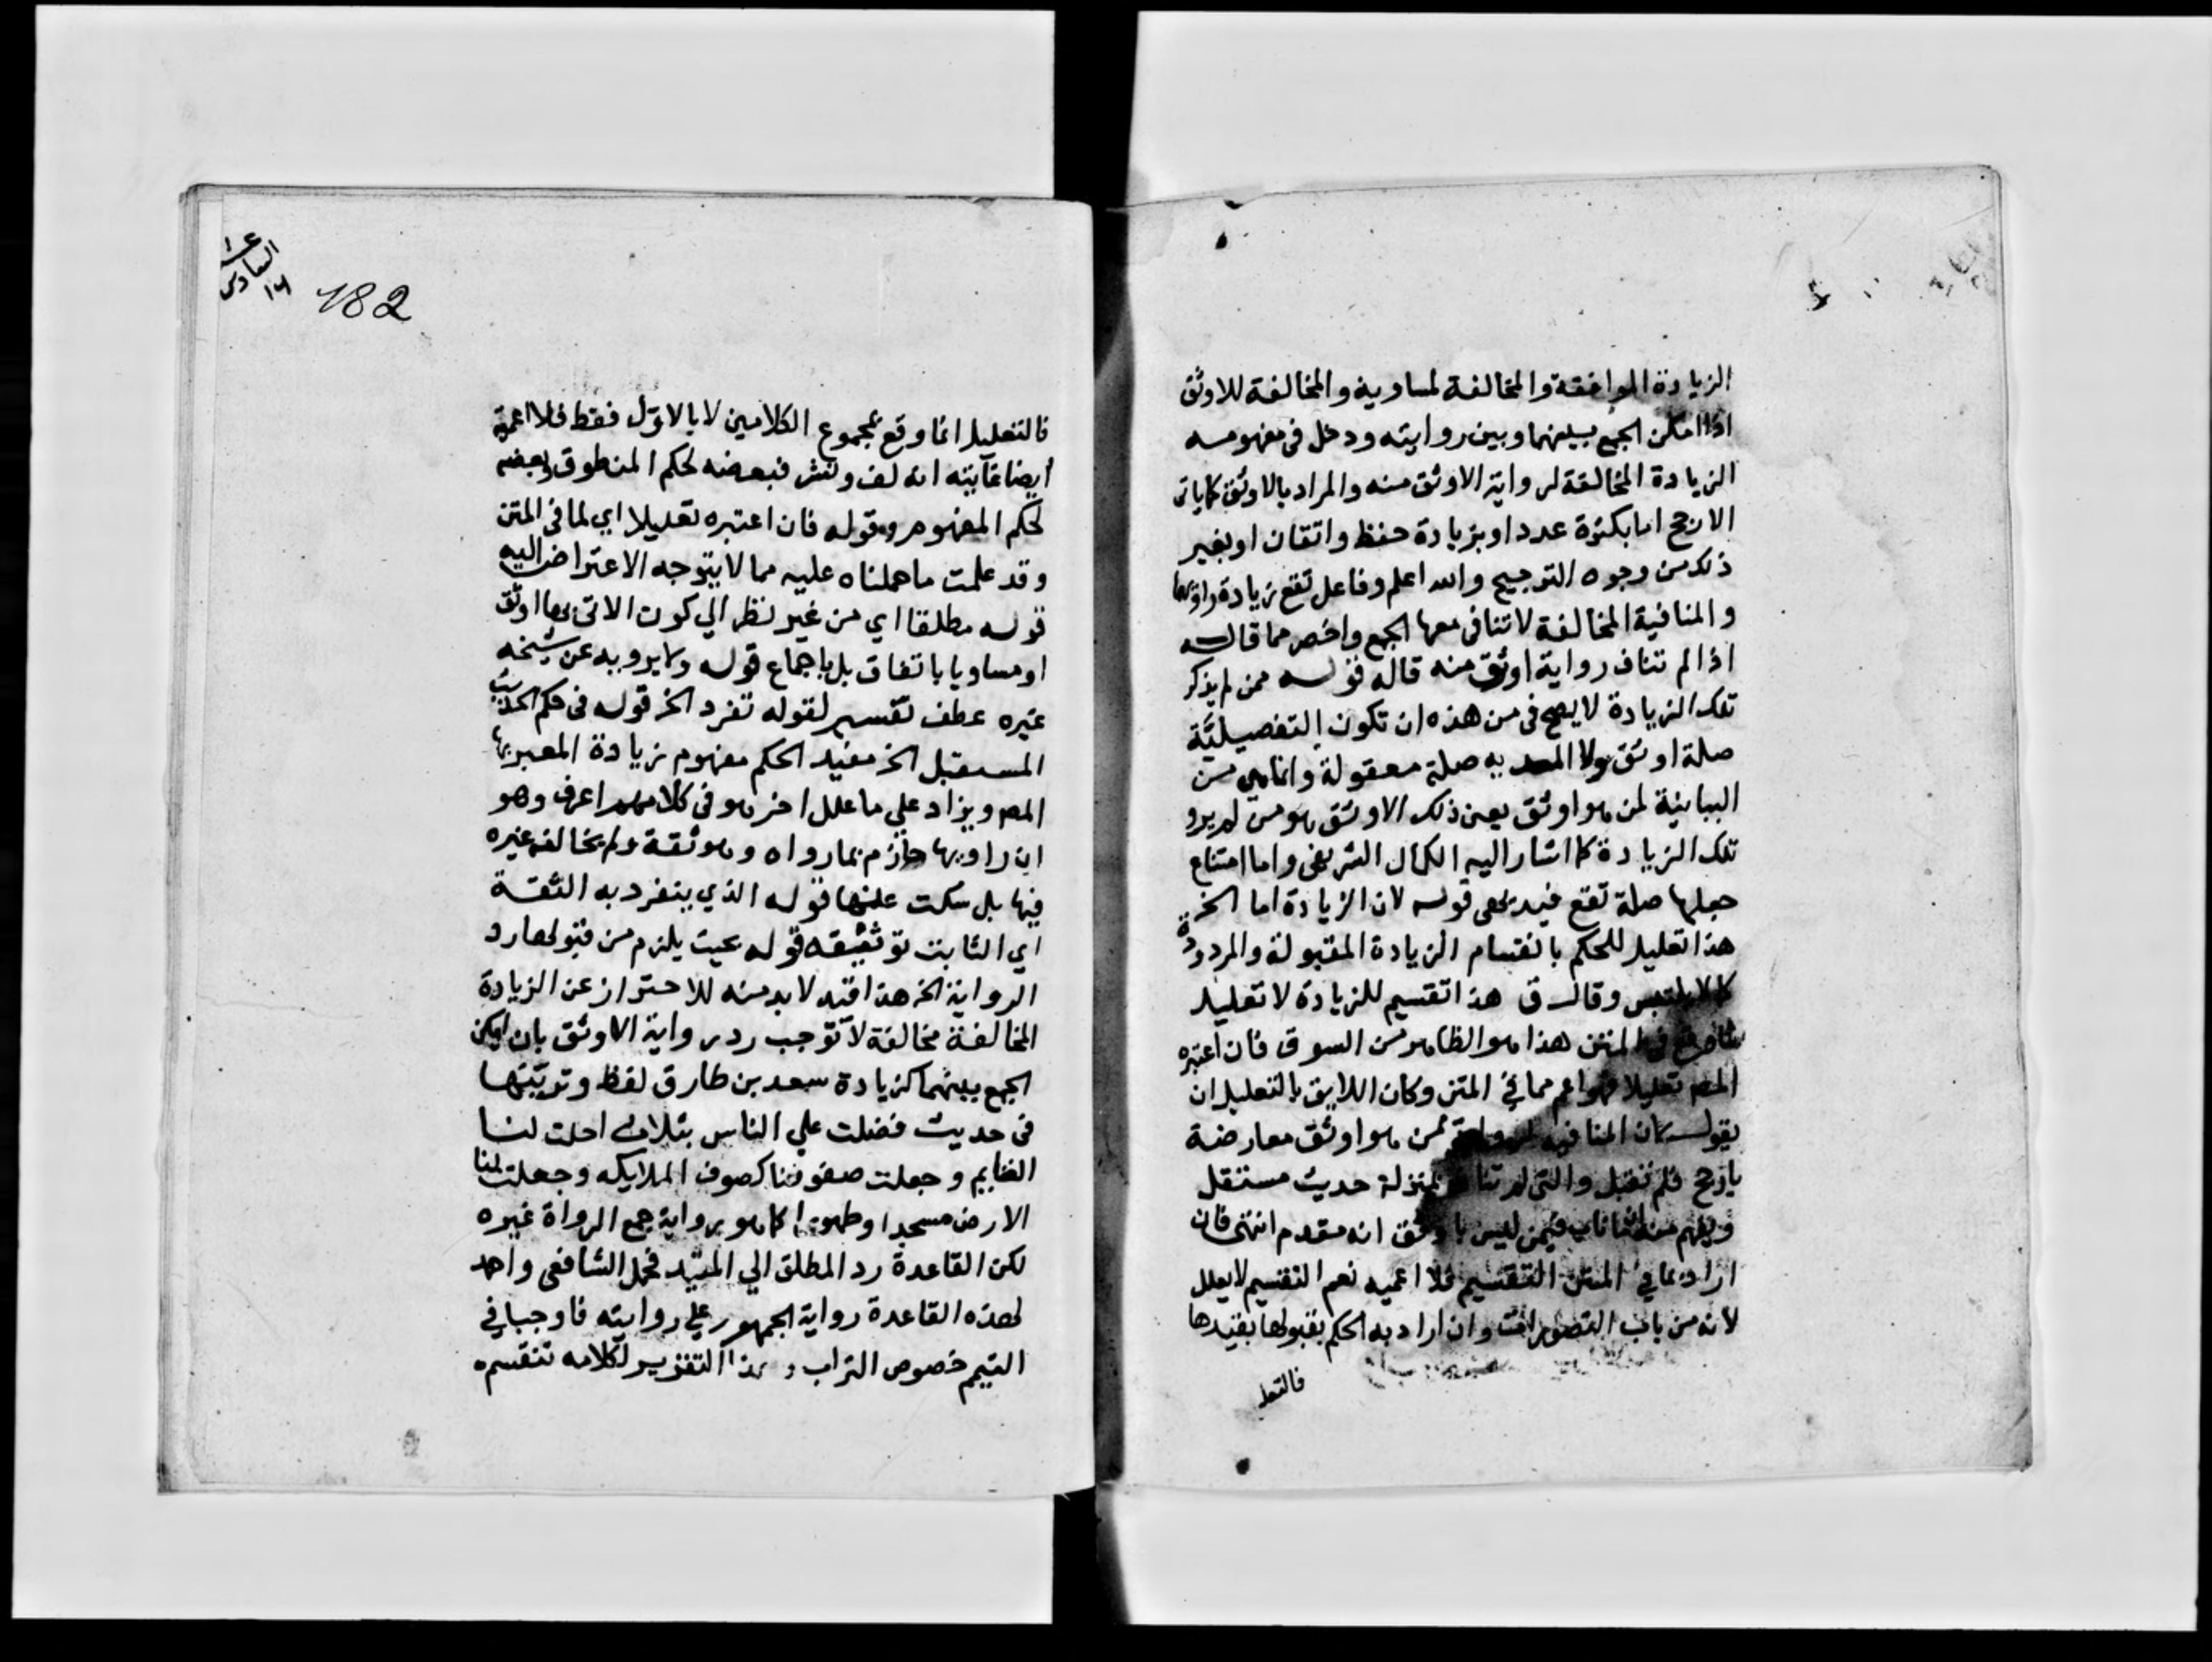 الزيادة الموافقة والمخالفة لمساويه والمخالفة للاوثق
اذا امكن الجمع بينهما وبين روايته ودخل في مفهومه
الزيادة المخالفة لرواية الاوثق منه والمراد بالاوثق كما ياتي
الارجح اما بكثرة عدد او بزيادة حفظ واتقان او بغير
ذلك من وجوه الترجيح والله اعلم وفاعل تقع زيادة راويهما
والمنافية المخالفة لا تنافي معها الجمع واخصر مما قاله
اذا لم تناف رواية اوثق منه قاله قوله ممن لم يذكر
تلك الزيادة لا يصح في من هذه ان تكون التفصيلية
صلة اوثق ولا به صلة معقولة وانما هي من
البيانية لمن هو اوثق يعني ذلك الاوثق هو من لم يرو
تلك الزيادة كما اشار اليه الكمال الشريفي واما امتناع
جعلها صلة تقع فبديهي قوله لان الزيادة اما الخ
هذا تعليل للحكم بانقسام الزيادة المقبولة والمردودة
كما لا يلتبس وقال ق هذا تقسيم للزيادة لا تعليل
في المتن هذا هو الظاهر من السوق فان اعتبره
المصم تعليلا فهو اعم مما في المتن وكان اللايق بالتعليل ان
يقول لان المنافية ممن هو اوثق معارضة
بارجح فلم تقبل والتي لم تناف بمنزلة حديث مستقل
فيمن ليس باوثق انه مقدم انتهى فان
اراد بما في المتن التقسيم فلا اعميه نعم التقسيم لا يعلل
لانه من باب التصورات وان اراد به الحكم بقبولها بقيدها
فالتعل
عا
السادس
١٦
182
فالتعليل انما وقع بمجموع الكلامين لا بالاول فقط فلا اعمية
ايضا غايته انه لف ونشر فبعضه لحكم المنطوق وبعضه
لحكم المفهوم وقوله فان اعتبره تعليلا اي لما في المتن
وقد علمت ما حملناه عليه مما لا يتوجه الاعتراض اليه
قوله مطلقا اي من غير نظر الي كون الاتي بها اوثق
او مساويا باتفاق بل باجماع قوله ولا يرويه عن شيخه
غيره عطف تفسير لقوله تفرد الخ قوله في حكم الحديث
المستقبل الخ مفيد الحكم مفهوم زيادة المعبر بها
المصم ويزاد علي ما علل اخر هو في كلامهم اعرف وهو
ان راويها جازم بما رواه وهو ثقة ولم يخالف غيره
فيها بل سكت عنها قوله الذي ينفرد به الثقة
اي الثابت توثيقه قوله بحيث يلزم من قبولها رد
الرواية الخ هذا قيد لا بد منه للاحتراز عن الزيادة
المخالفة مخالفة لا توجب رد رواية الاوثق بان امكن
الجمع بينهما كزيادة سعد بن طارق لفظ وتربتها
في حديث فضلت علي الناس بثلاث احلت لنا
الغنايم وجعلت صفوفنا كصوف الملايكه وجعلت لنا
الارض مسجدا وطهورا كما هو برواية جميع الرواة غيره
لكن القاعدة رد المطلق الي المقيد فحمل الشافعي واحمد
لهذه القاعدة رواية الجمهور علي روايته فاوجبا في
التيمم خصوص التراب وبهذا التقرير لكلامه تنقسم